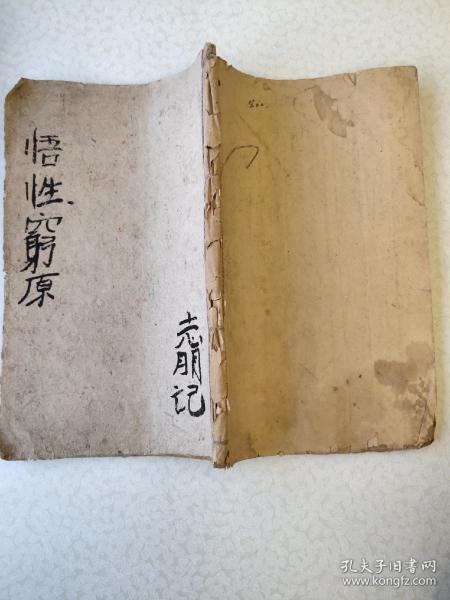 悟性窮原
志朋记
孔夫子旧书网
www.kongfz.com